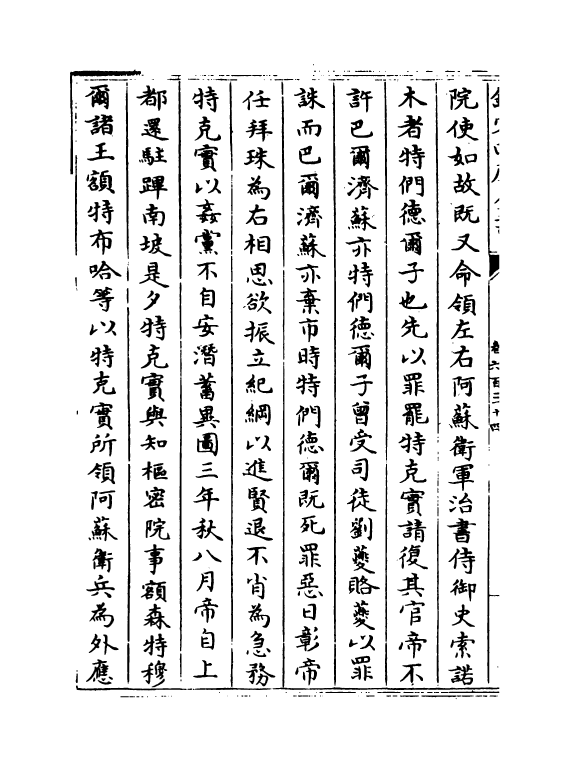 院使如故既又命領左右阿蘇衛軍治書侍御史索諾
木者特們德爾子也先以罪罷特克實請復其官帝不
許巴爾濟蘇亦特們德爾子曾受司徒劉夔賂夔以罪
誅而巴爾濟蘇亦棄市時特們德爾既死罪惡日彰帝
任拜珠為右相思欲振立紀綱以進賢退不肖為急務
特克實以姦黨不自安潛蓄異圖三年秋八月帝自上
都還駐蹕南坡是夕特克實與知樞密院事額森特穆
爾諸王額特布哈等以特克實所領阿蘇衛兵為外應
卷六百三十四